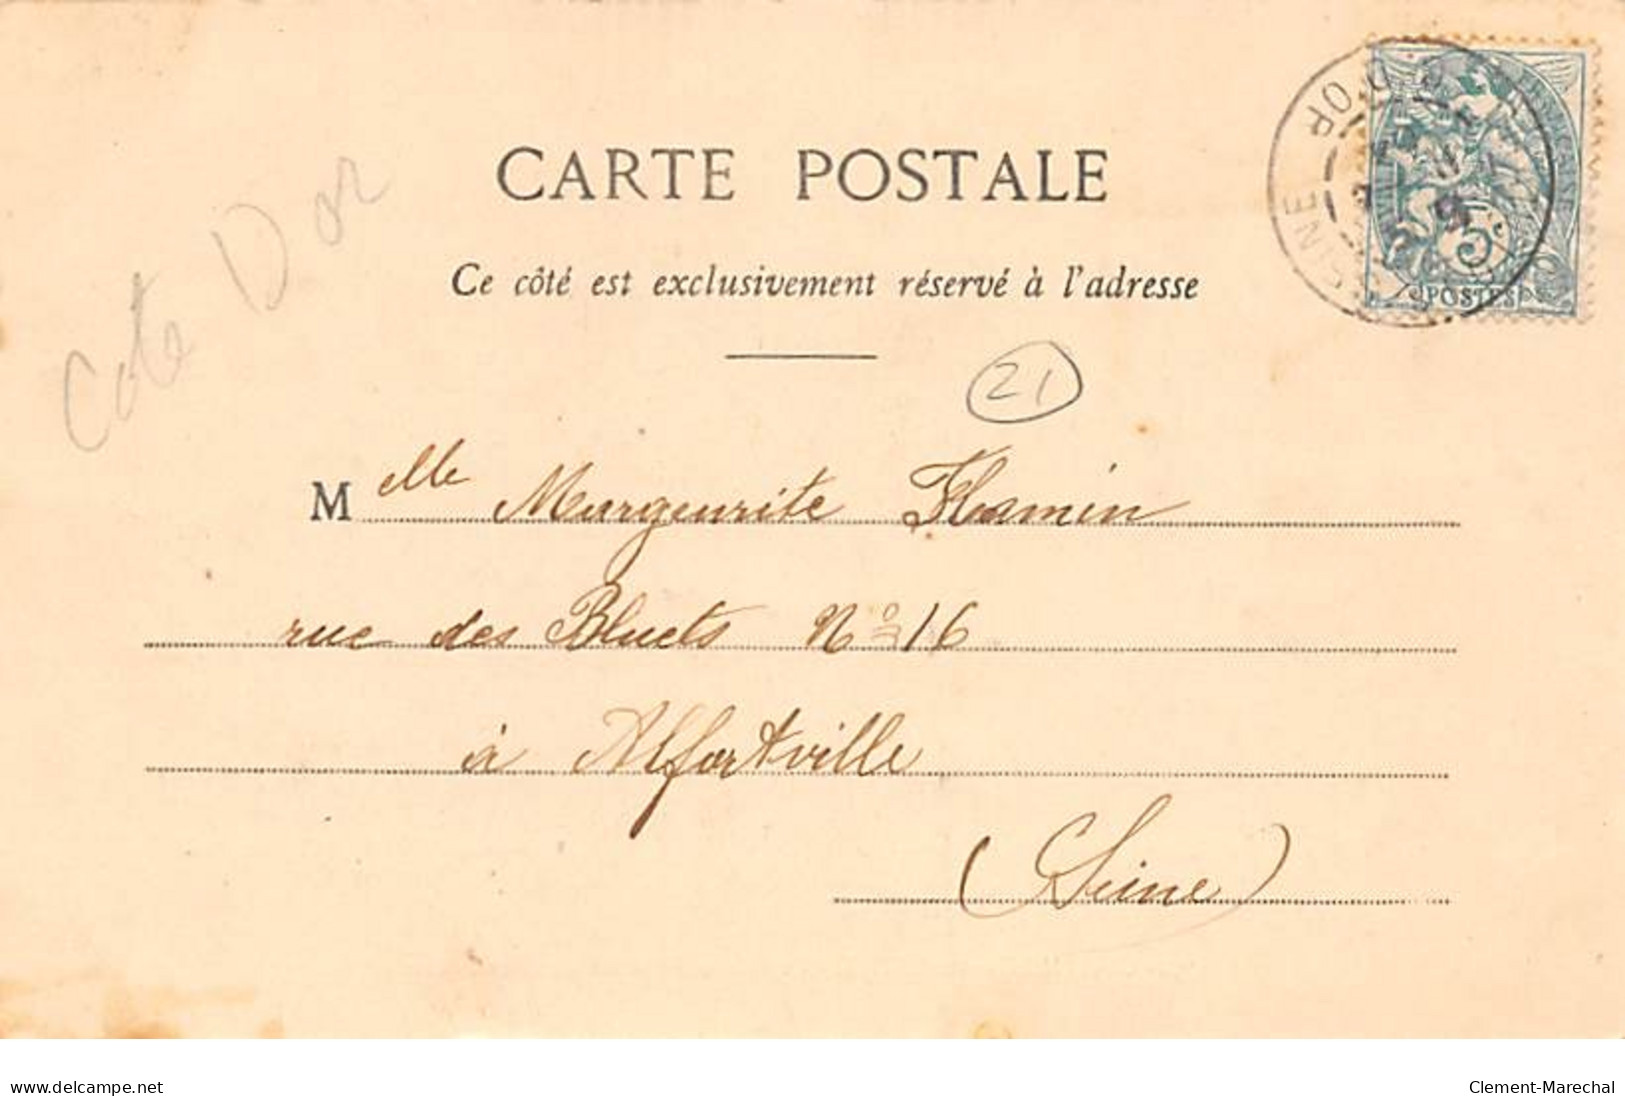 CARTE POSTALE
Ce côté est exclusivement réservé à l'adresse
Cote D or
21
Melle Marguerite Flamin
rue des Bluets No 16
à Alfortville
(Seine)
5c
POSTES
delcampe.net
Clement-Marechal